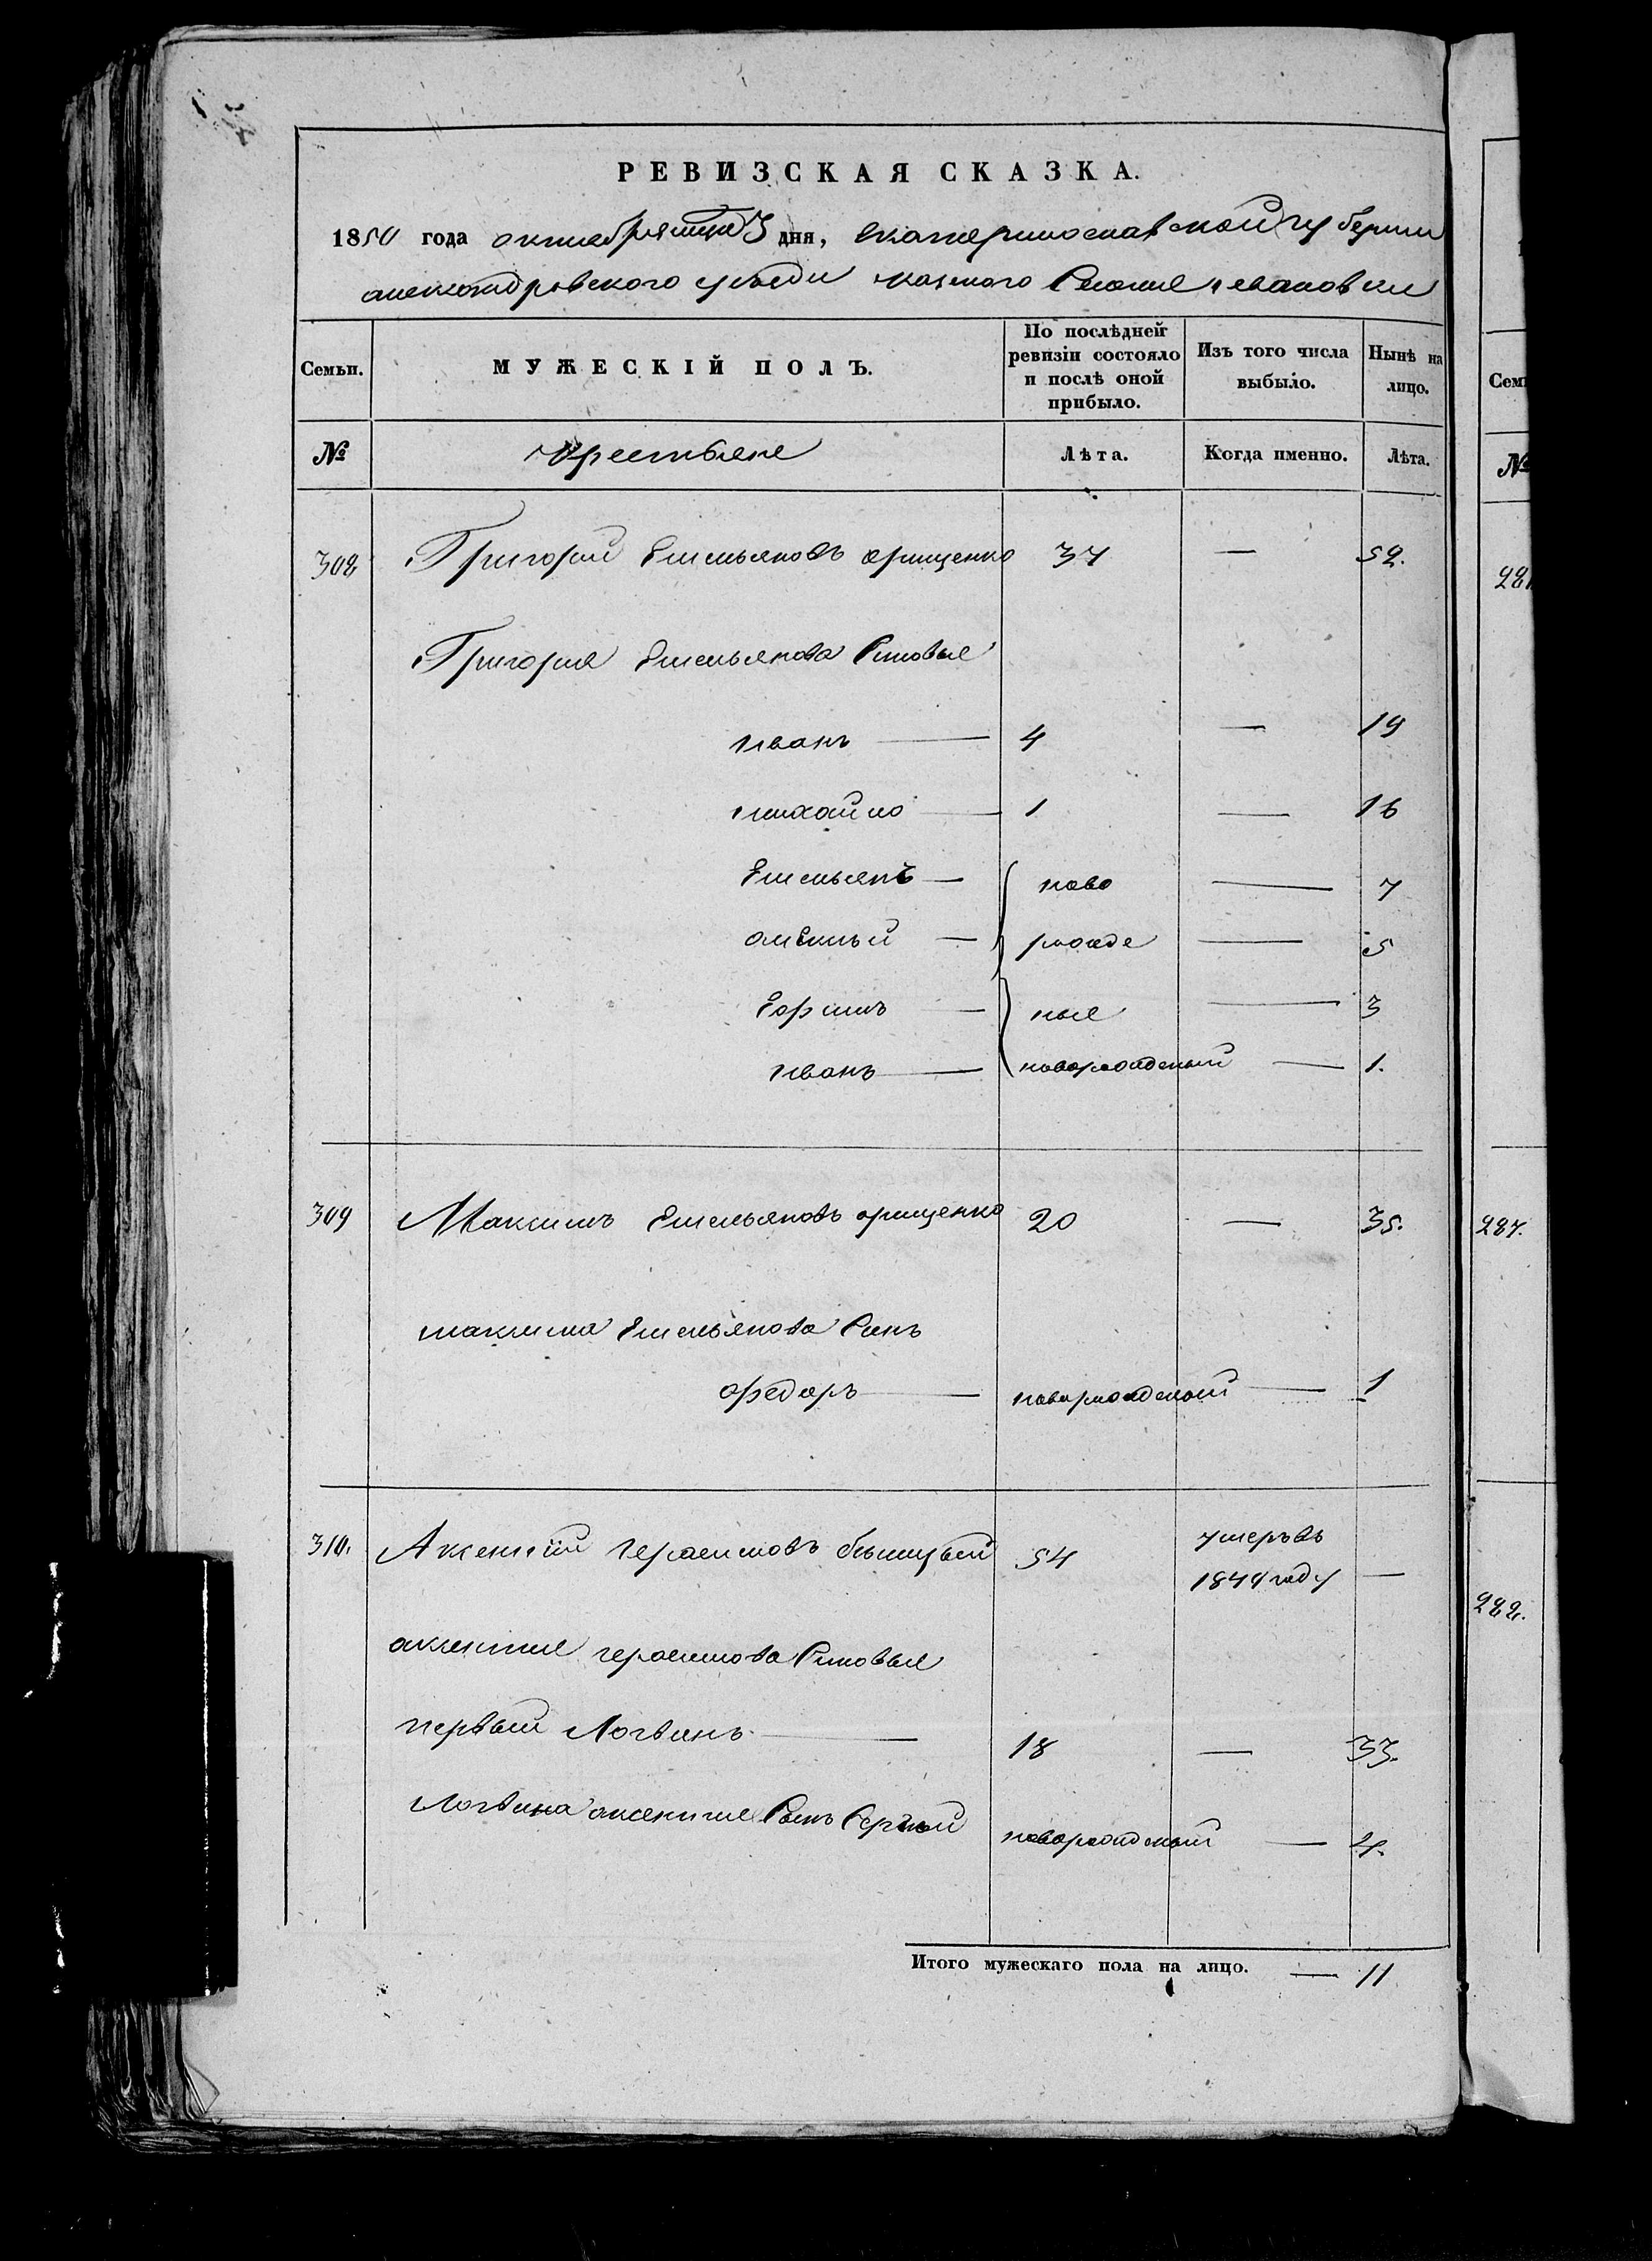 РЕВИЗСКАЯ СКАЗКА.
1850 года октября 3 дня, екатеринославской губернии
александровского уезди казеного Селение ивановки
Семьи. МУЖЕСКІЙ ПОЛЪ. По послѣдней ревизіи состояло и послѣ оной прибыло. Изъ того числа выбыло. Нынѣ на лицо.
№ крестьяне Лѣта. Когда именно. Лѣта.
308 Григорий Емельяновъ орищенко 37 — 52.
Григория Емельянова Сыновья
иванъ — 4 — 19
михайло — 1 — 16
Емельянъ — ново — 7
рожде — 5
Ефимъ — ные — 3
иванъ — новорожденый — 1.
309 Максимъ Емельяновъ орищенко 20 — 35.
максима Емельянова Синъ
федоръ — новорожденый — 1
310. Аксентій герасимовъ 54 умеръ въ
1844 году —
аксентия герасимова Сыновья
первый Логвинъ — 18 — 33.
Логвина аксентия Сынъ Сергѣй новорожденый — 4.
Итого мужескаго пола на лицо. — 11
Сем
№
281
287.
282.